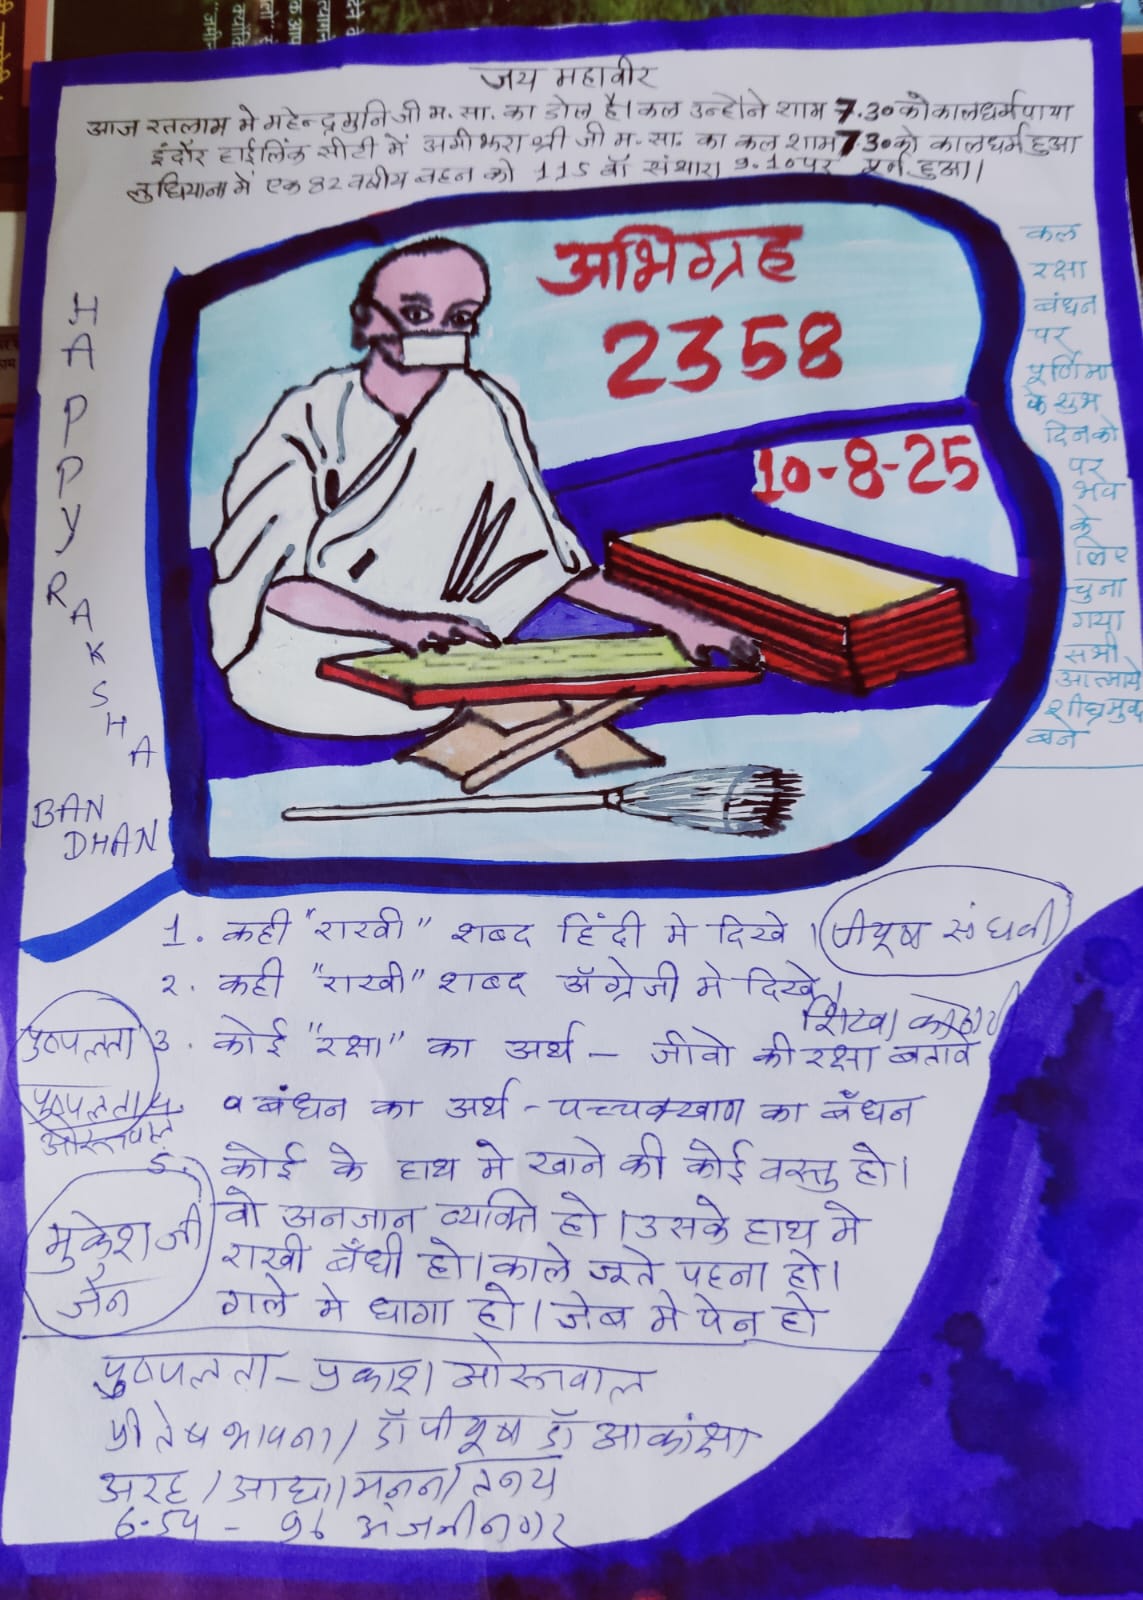 जय महावीर
आज रतलाम मे महेन्द्रमुनिजी म. सा. का डोल है। कल उन्होने शाम 7.30 को कालधर्म पाया
इंदौर हाईलिंक सीटी में अमीझरा श्री जी म. सा. का कल शाम 7.30 को कालधर्म हुआ
लुधियाना में एक 82 वर्षीय बहन को 115 वॉ संथारा 9.10 पर पूर्न हुआ।
अभिग्रह
2358
10-8-25
HAPPY RAKSHA
BAN
DHAN
कल
रक्षा
बंधन
पर
पूर्णिमा
के शुभ
दिन को
पर
भव
के
लिए
चुना
गया
सभी
आत्माये
शीघ्र मुक्त
बने
1. कही "राखी" शब्द हिंदी मे दिखे। पीयूष संघवी
२. कही "राखी" शब्द अँग्रेजी मे दिखे।
शिखा कोठारी
पुष्पलता ३. कोई "रक्षा" का अर्थ – जीवो की रक्षा बतावे
पुष्पलता ४. व बंधन का अर्थ – पच्चक्खाण का बँधन
ओस्तवाल
5. कोई के हाथ मे खाने की कोई वस्तु हो।
वो अनजान व्यक्ति हो। उसके हाथ मे
राखी बँधी हो। काले जूते पहना हो।
गले मे धागा हो। जेब मे पेन हो
मुकेश जी
जैन
पुष्पलता – प्रकाश ओस्तवाल
प्रीतेष भावना / डॉ पीयूष डॉ आकांक्षा
अरह / आद्या / मनन / तनय
6-54 – 96 अंजनीनगर